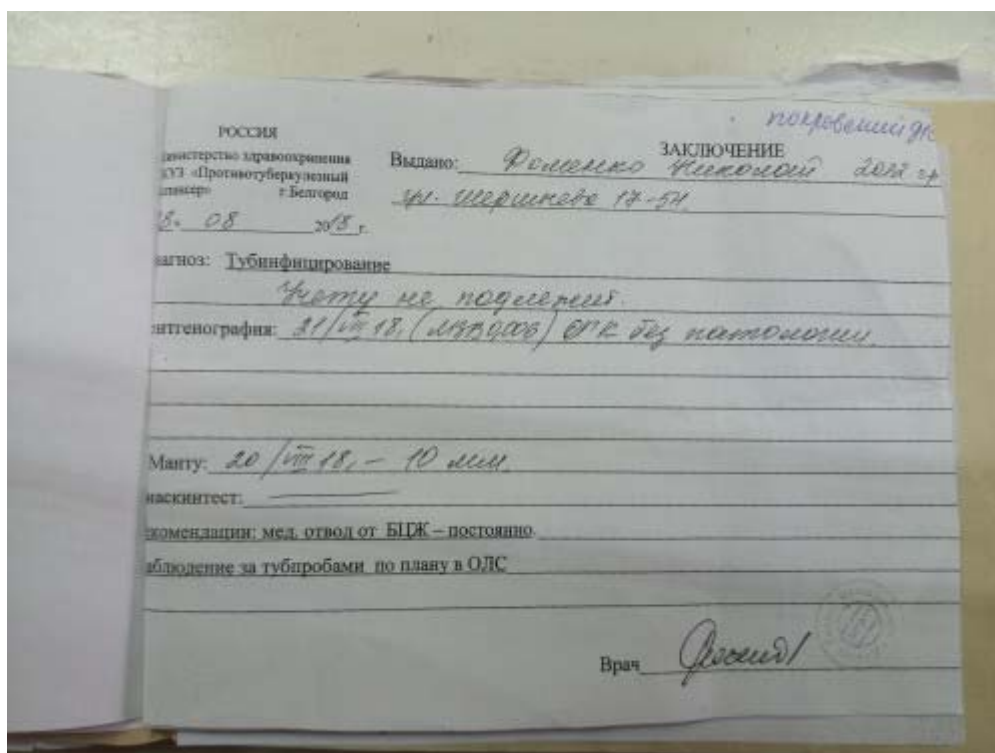 покровский
РОССИЯ
ЗАКЛЮЧЕНИЕ
министерство здравоохранения
КУЗ «Противотуберкулезный
диспансер» г.Белгород
Выдано: Фоменко Николай 2012 гр
ул. Шершнева 17-54
08 2018 г.
агноз: Тубинфицирование
Учету не подлежит.
нтгенография: 21/VIII 18, ОГК без патологии.
Манту: 20/VIII 18, – 10 мм.
иаскинтест:
екомендации: мед. отвод от БЦЖ – постоянно.
аблюдение за тубпробами по плану в ОЛС
Врач